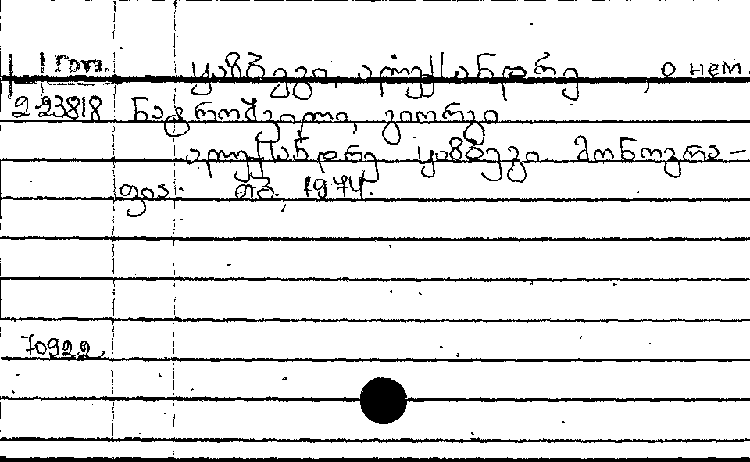 ყაზბეგი, ალექსანდრე, о нем.
2-23818 ნატროშვილი, გიორგი
ალექსანდრე ყაზბეგი მონოგრა-
ფია. თბ., 1974.
70922.